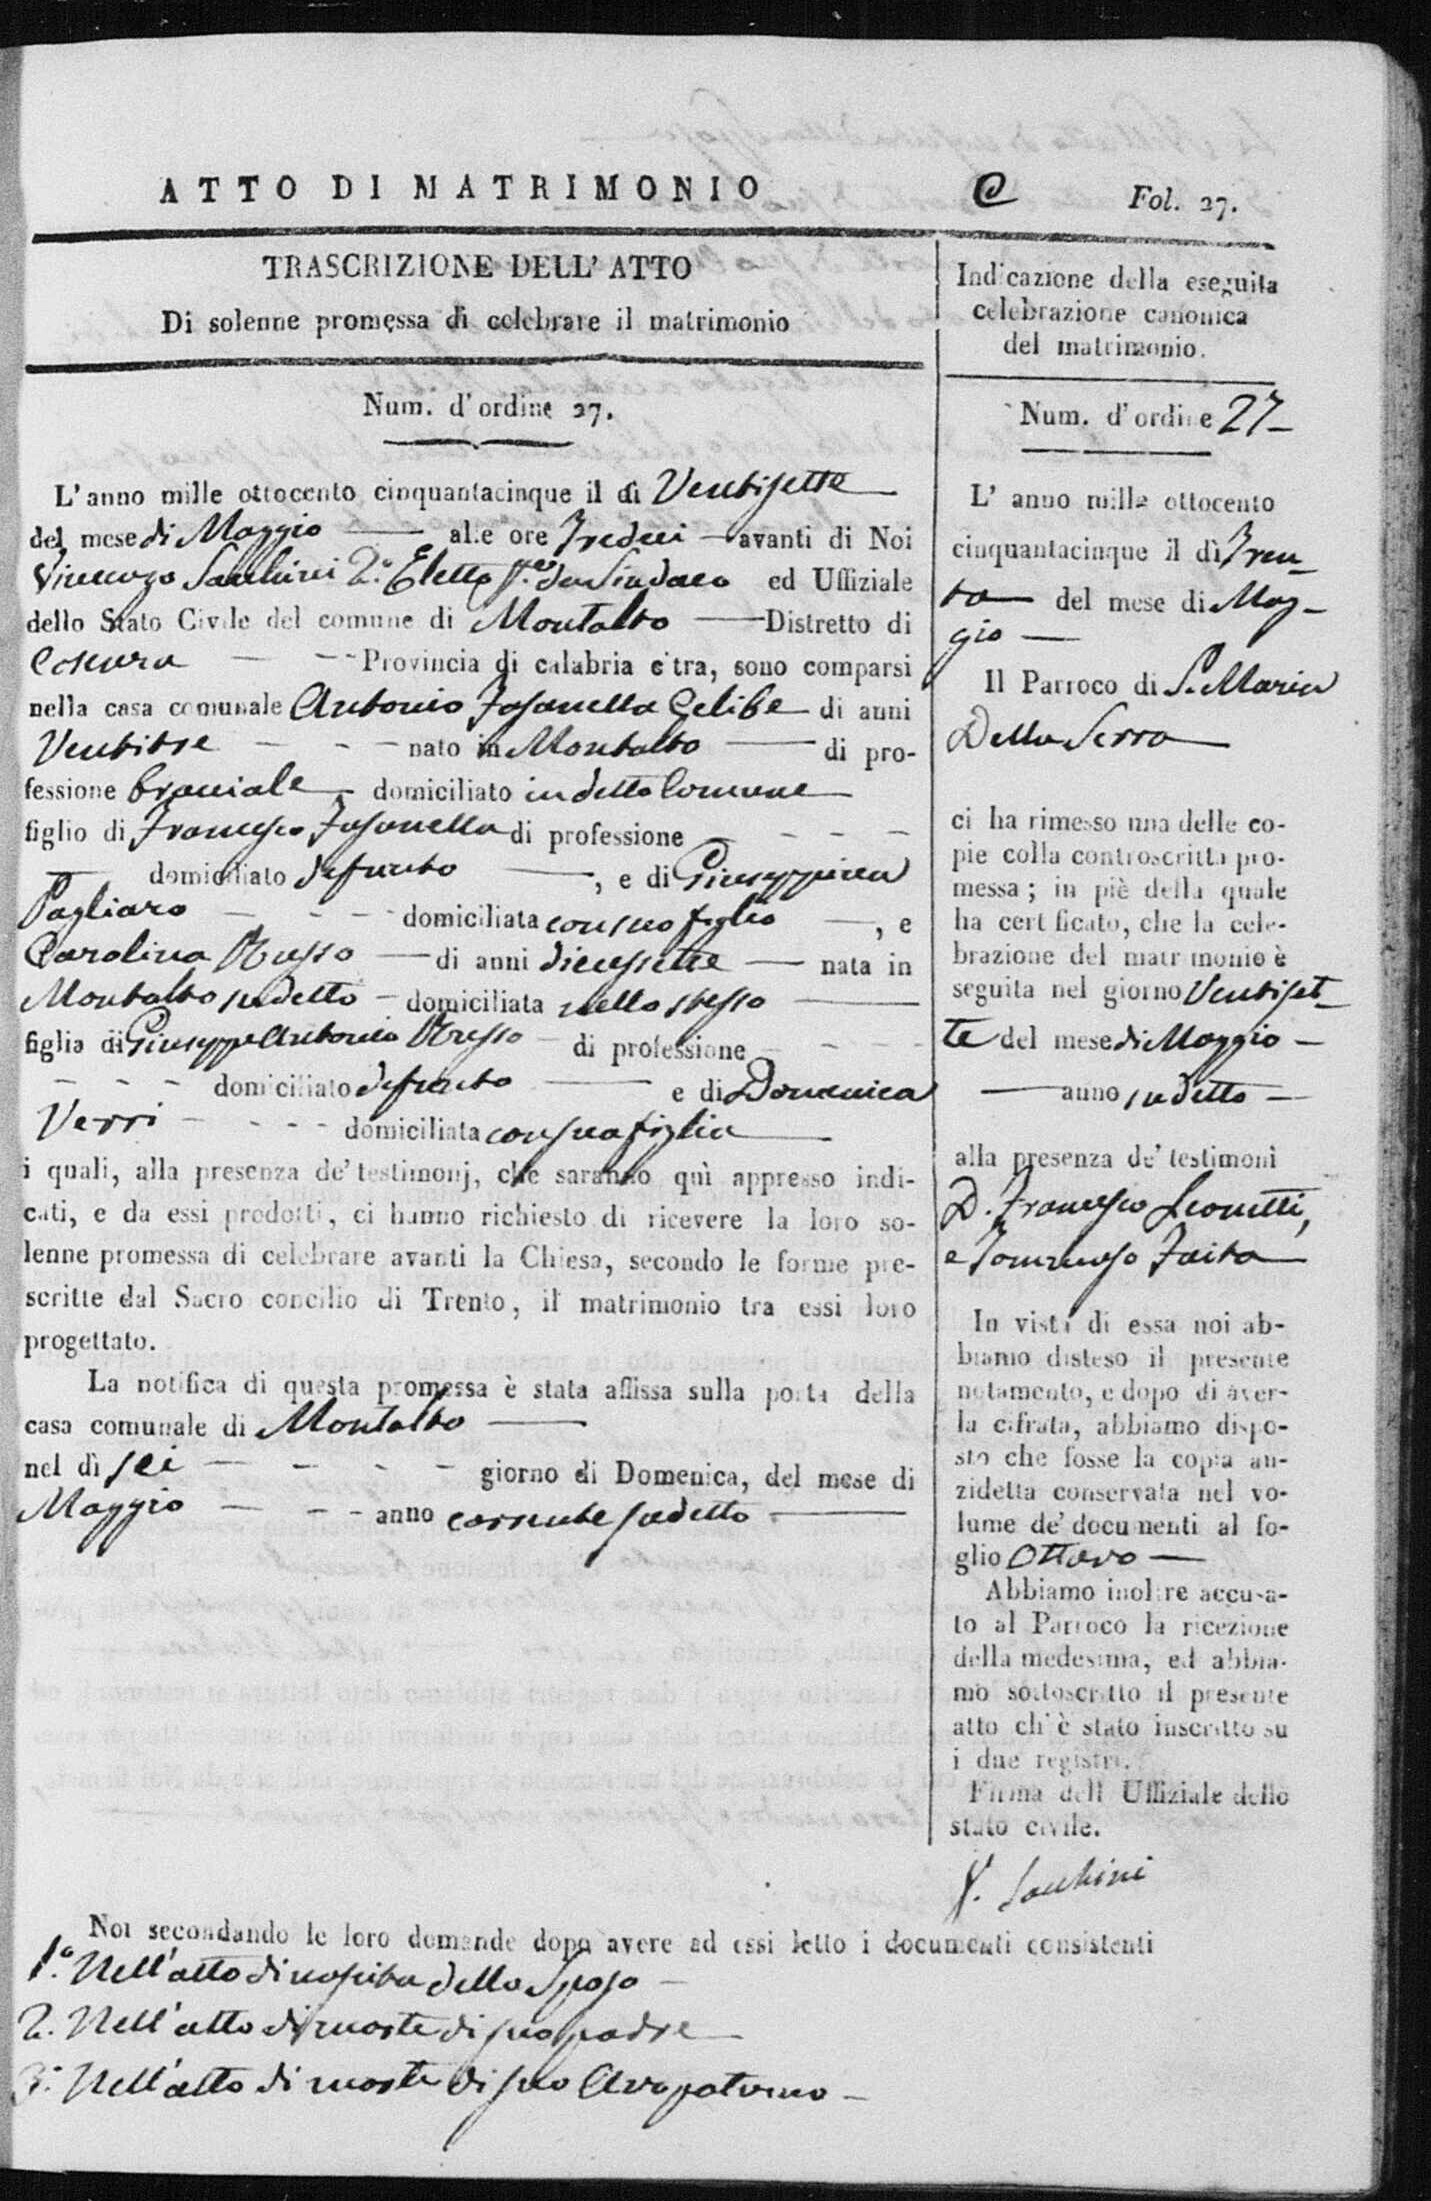 ATTO DI MATRIMONIO
C Fol. 27.
TRASCRIZIONE DELL' ATTO
Di solenne promessa di celebrare il matrimonio
Num. d'ordine 27.
L'anno mille ottocento cinquantacinque il dì Ventisette
del mese di Maggio alle ore Tredeci avanti di Noi
Vincenzo Sacchini 2.º Eletto ff.es da Sindaco ed Uffiziale
dello Stato Civile del comune di Montalto Distretto di
Cosenza Provincia di calabria citra, sono comparsi
nella casa comunale Antonio Fasanella Celibe di anni
Ventitre nato in Montalto di pro-
fessione bracciale domiciliato in detto Comune
figlio di Francesco Fasanella di professione
domiciliato defunto, e di Giuseppina
Pagliaro domiciliata con suo figlio, e
Carolina Russo di anni diecessette nata in
Montalto sudetto domiciliata nello stesso
figlia di Giuseppe Antonio Russo di professione
domiciliato defunto e di Domenica
Verri domiciliata con sua figlia
i quali, alla presenza de' testimonj, che saranno quì appresso indi-
cati, e da essi prodotti, ci hanno richiesto di ricevere la loro so-
lenne promessa di celebrare avanti la Chiesa, secondo le forme pre-
scritte dal Sacro concilio di Trento, il matrimonio tra essi loro
progettato.
La notifica di questa promessa è stata affissa sulla porta della
casa comunale di Montalto
nel dì sei giorno di Domenica, del mese di
Maggio anno corrente sudetto
Indicazione della eseguita
celebrazione canonica
del matrimonio.
Num. d'ordine 27
L' anno mille ottocento
cinquantacinque il dì Tren-
ta del mese di Mag-
gio
Il Parroco di S. Maria
Della Serra
ci ha rimesso una delle co-
pie colla controscritta pro-
messa; in piè della quale
ha certificato, che la cele-
brazione del matrimonio è
seguita nel giorno Ventiset-
te del mese di Maggio
anno sudetto
alla presenza de' testimoni
D. Francesco Leonetti,
e Tommaso Faita
In vista di essa noi ab-
biamo disteso il presente
notamento, e dopo di aver-
la cifrata, abbiamo dispo-
sto che fosse la copia an-
zidetta conservata nel vo-
lume de' documenti al fo-
glio Ottavo
Abbiamo inoltre accusa-
to al Parroco la ricezione
della medesima, ed abbia-
mo sottoscritto il presente
atto ch'è stato inscritto su
i due registri.
Firma dell Uffiziale dello
stato civile.
V. Sacchini
Noi secondando le loro domande dopo avere ad essi letto i documenti consistenti
1.º Nell'atto di nascita dello Sposo
2. Nell'atto di morte di suo padre
3.º Nell'atto di morte di suo Avo paterno